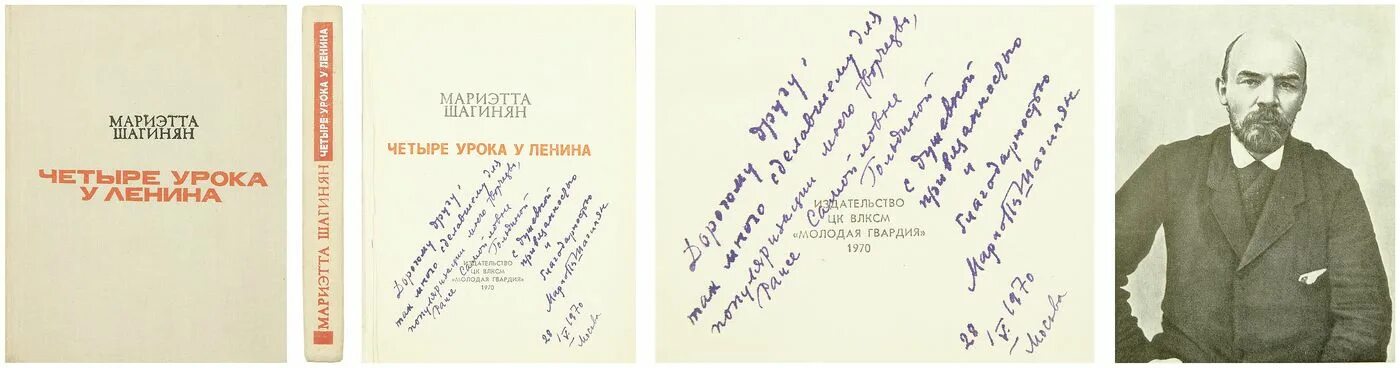 МАРИЭТТА
ШАГИНЯН
ЧЕТЫРЕ УРОКА
У ЛЕНИНА
МАРИЭТТА ШАГИНЯН ЧЕТЫРЕ УРОКА У ЛЕНИНА
МАРИЭТТА
ШАГИНЯН
ЧЕТЫРЕ УРОКА У ЛЕНИНА
Дорогому другу,
так много сделавшему для
популяризации моего творчества,
Раисе Самойловне
Гольдиной
с душевной
привязанностью
и
благодарностью
Шагинян
28/V 1970
Москва
ИЗДАТЕЛЬСТВО
ЦК ВЛКСМ
«МОЛОДАЯ ГВАРДИЯ»
1970
Дорогому другу,
так много сделавшему для
популяризации моего творчества,
Раисе Самойловне
Гольдиной
с душевной
привязанностью
и
благодарностью
Шагинян
28/V 1970
Москва
ИЗДАТЕЛЬСТВО
ЦК ВЛКСМ
«МОЛОДАЯ ГВАРДИЯ»
1970